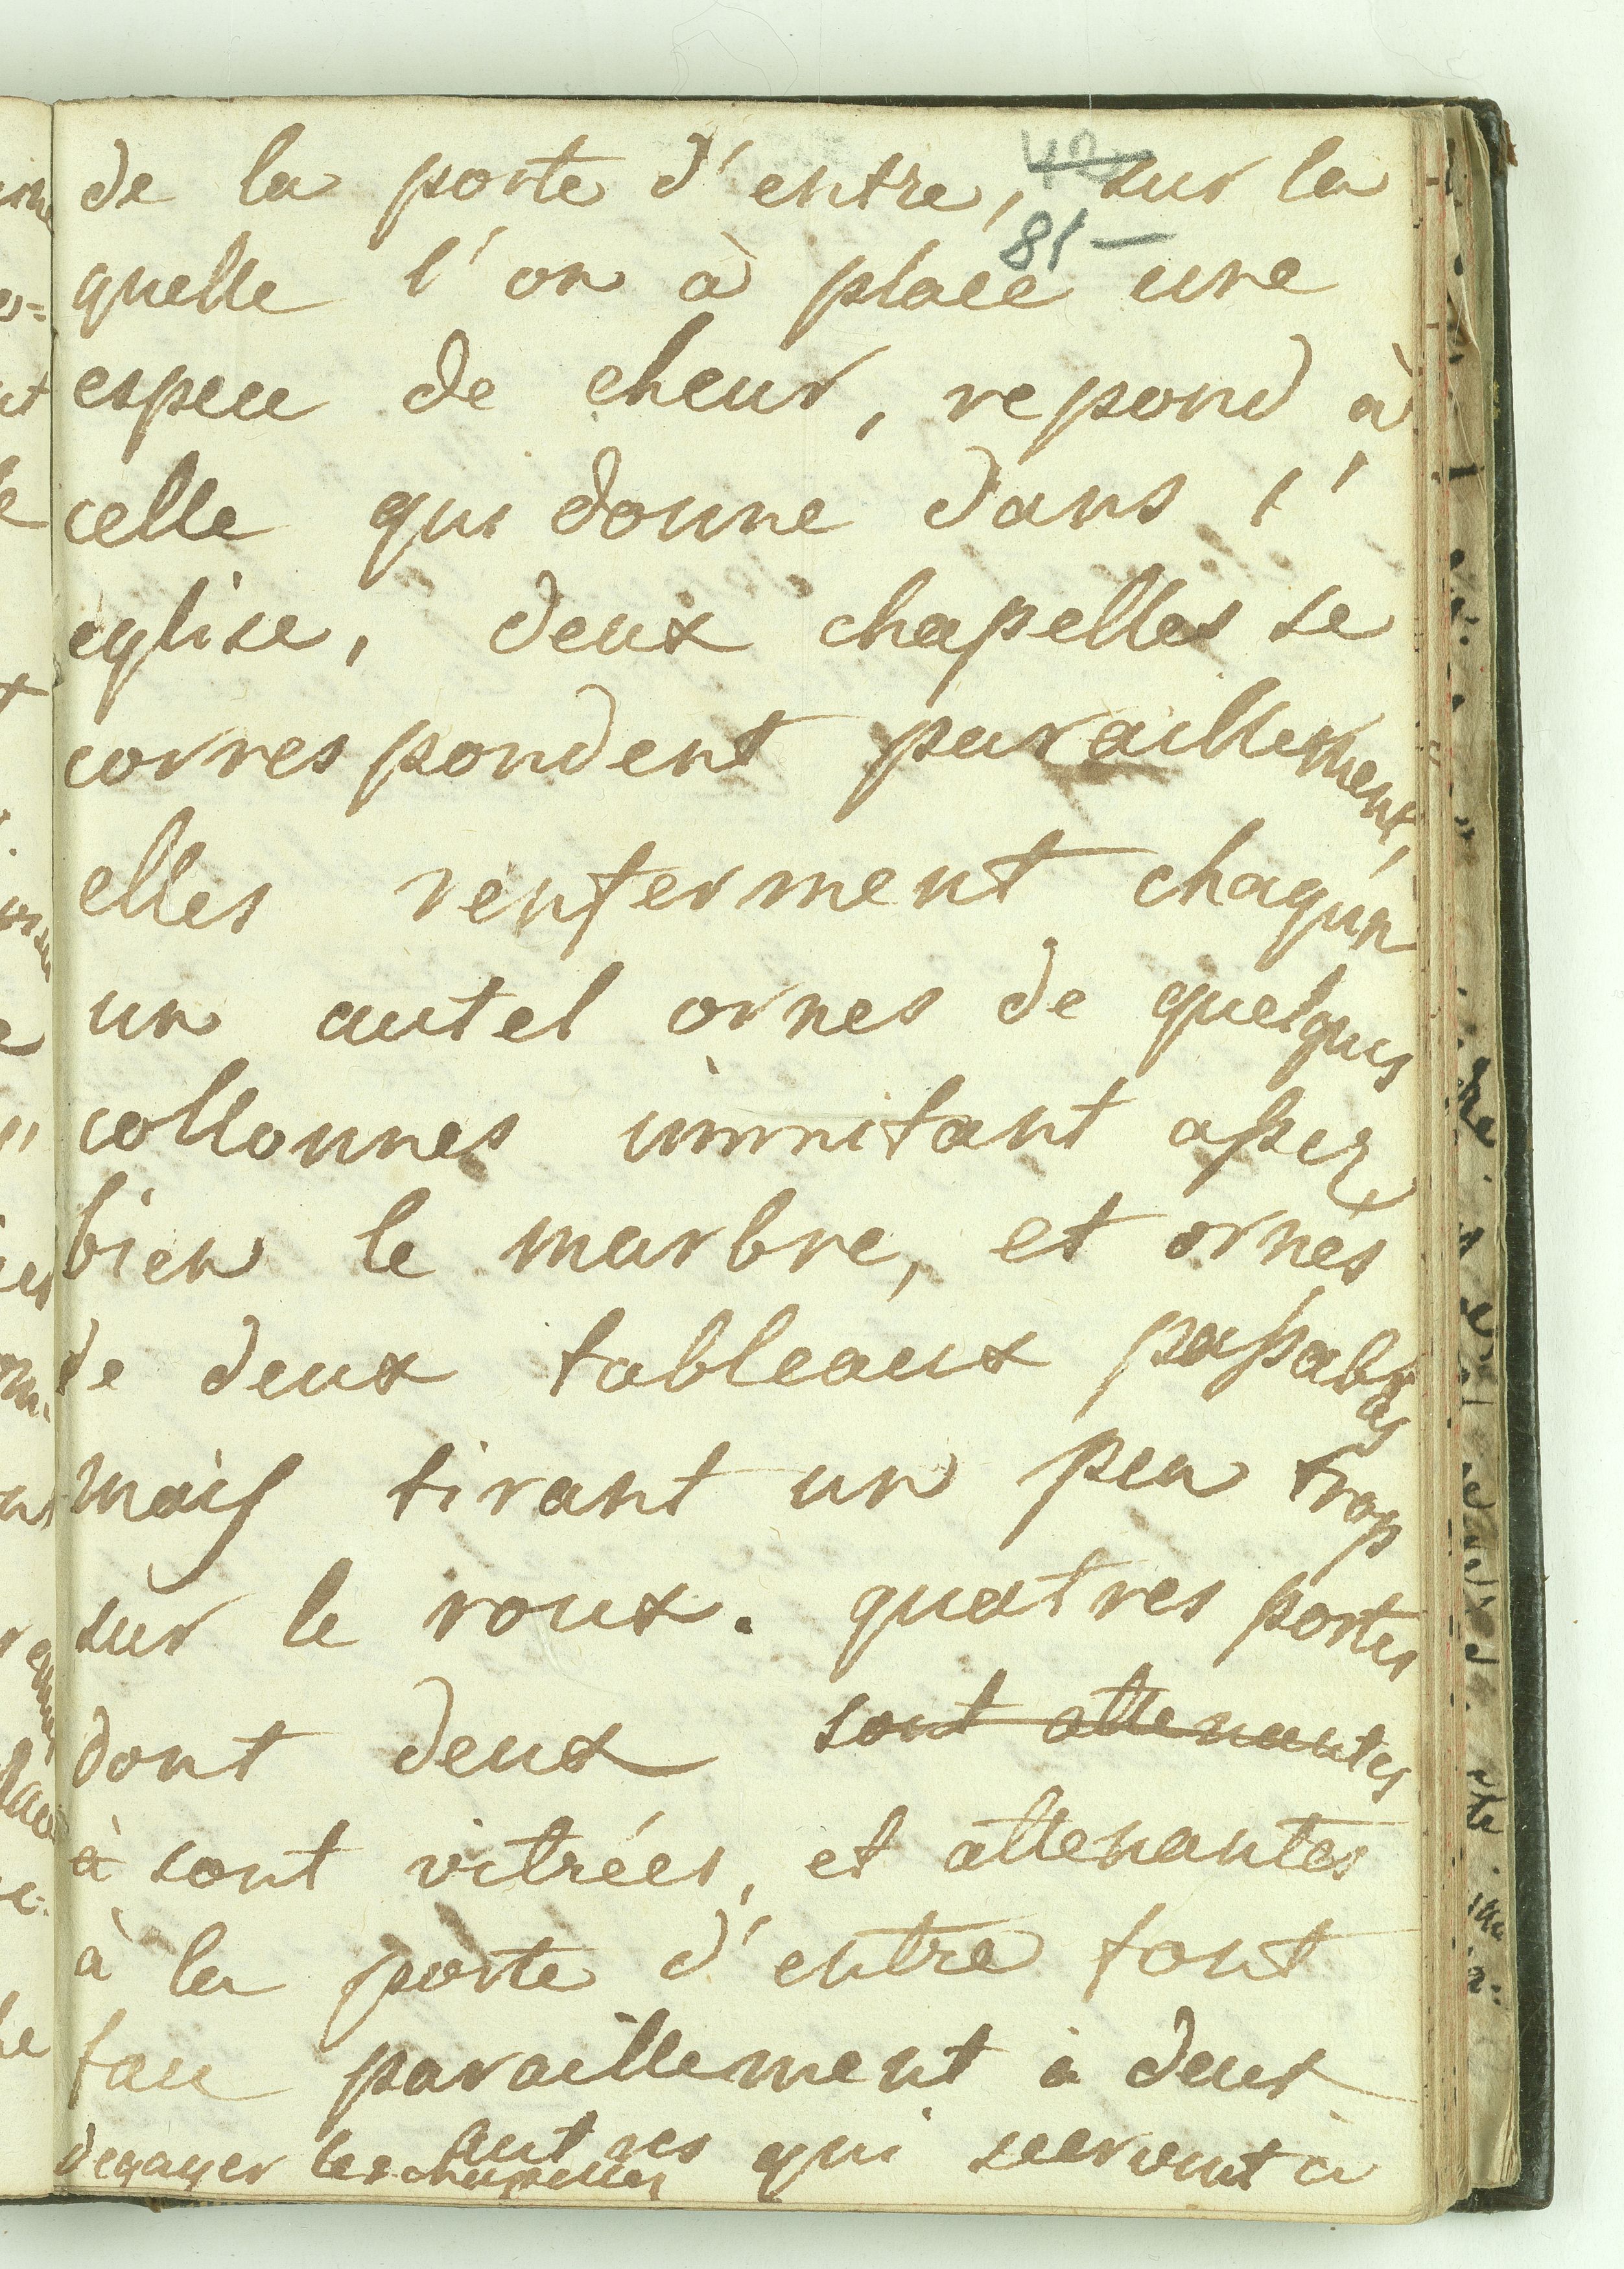 de la porte d'entre, sur la
42
81 —
quelle l'on à place une
espece de cheur, repond à
celle qui donne dans l'
eglise, deux chapelles se
correspondent paraillement,
elles renferment chaqu'un
un autel ornes de quelques
collonnes immitant assez
bien le marbre, et ornés
de deux tableaux passables
mais tirant un peu trop
sur le roux. quatres portes
dont deux sont attenantes
à sont vitrées, et attenantes
à la porte d'entre font
face paraillement à deux
autres qui servent à
degager les chapelles